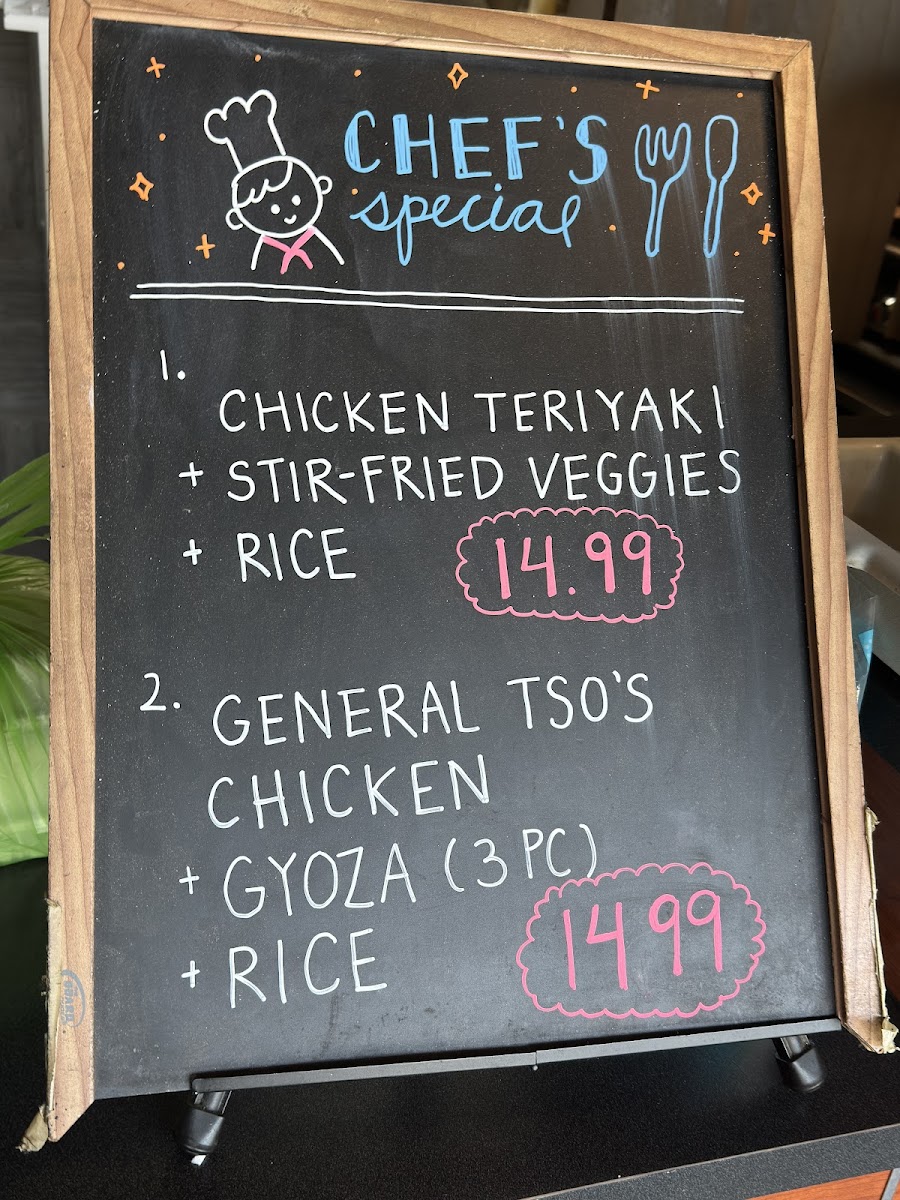 CHEF'S
special
1.
CHICKEN TERIYAKI
+ STIR-FRIED VEGGIES
+ RICE 14.99
2. GENERAL TSO'S
CHICKEN
+ GYOZA (3 PC)
+ RICE 14 99